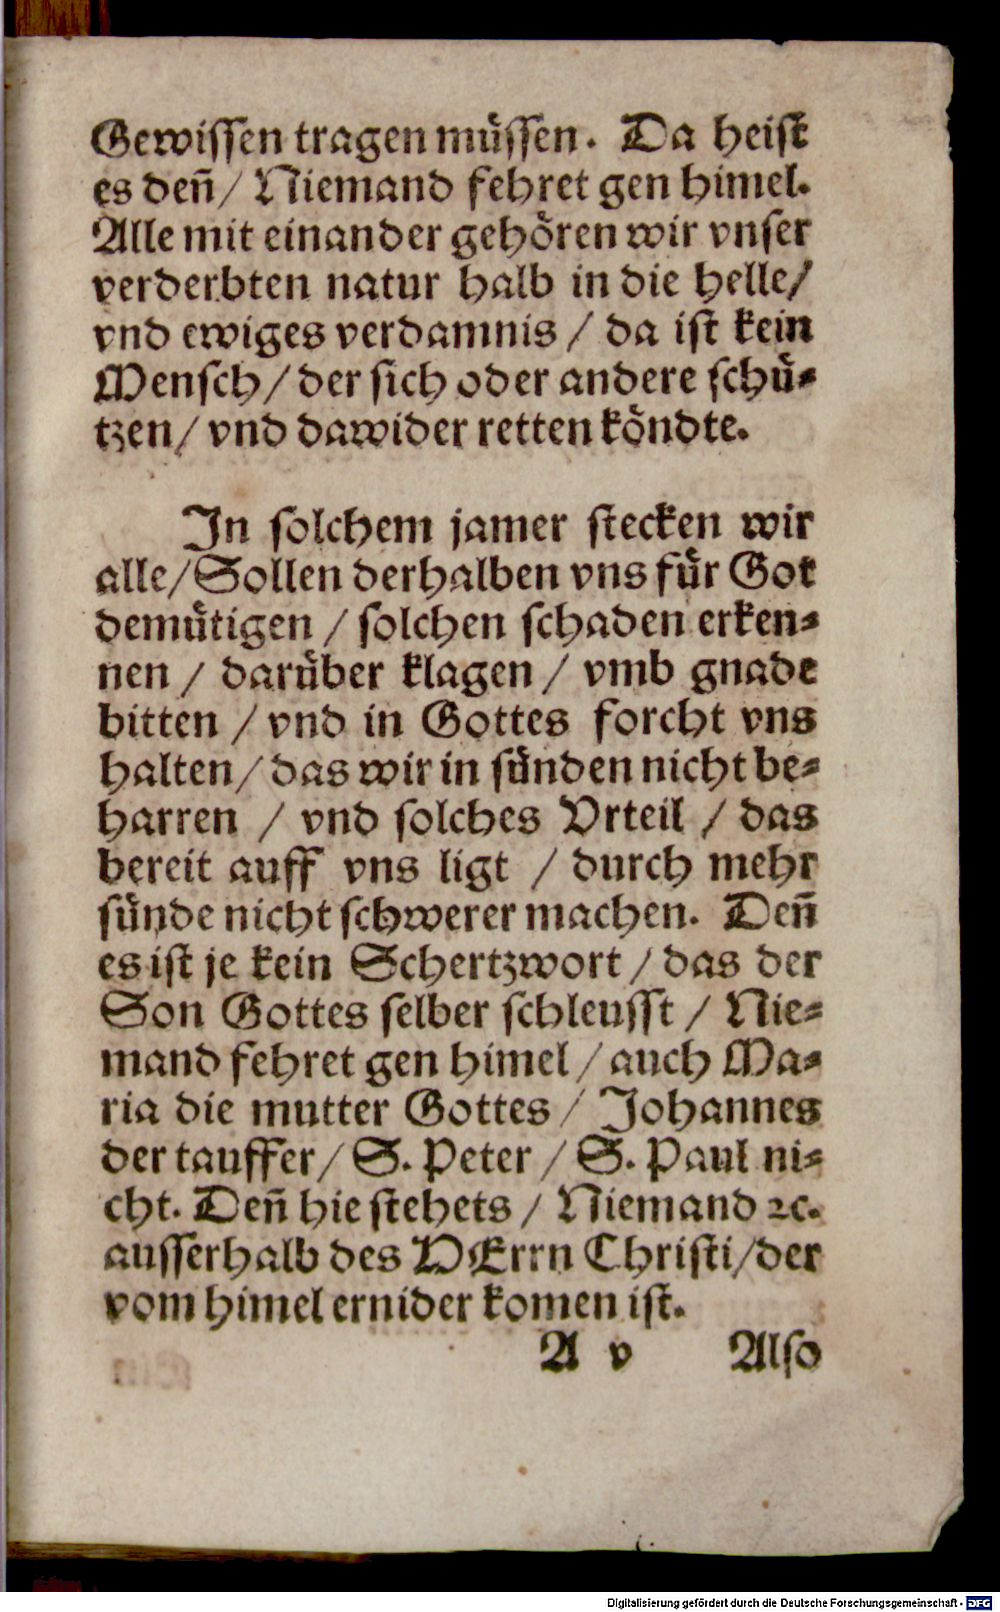 Gewissen tragen müssen. Da heist
es deñ/ Niemand fehret gen himel.
Alle mit einander gehören wir vnser
verderbten natur halb in die helle/
vnd ewiges verdamnis / da ist kein
Mensch/ der sich oder andere schü-
tzen/ vnd dawider retten köndte.
In solchem jamer stecken wir
alle/Sollen derhalben vns für Got
demütigen / solchen schaden erken-
nen / darüber klagen / vmb gnade
bitten / vnd in Gottes forcht vns
halten/ das wir in sünden nicht be-
harren / vnd solches Vrteil / das
bereit auff vns ligt / durch mehr
sünde nicht schwerer machen. Deñ
es ist je kein Schertzwort / das der
Son Gottes selber schleusst / Nie-
mand fehret gen himel / auch Ma-
ria die mutter Gottes / Johannes
der tauffer/ S. Peter / S. Paul ni-
cht. Deñ hie stehets / Niemand ꝛc.
ausserhalb des HErrn Christi/der
vom himel ernider komen ist.
A v Also
Digitalisierung gefördert durch die Deutsche Forschungsgemeinschaft - DFG